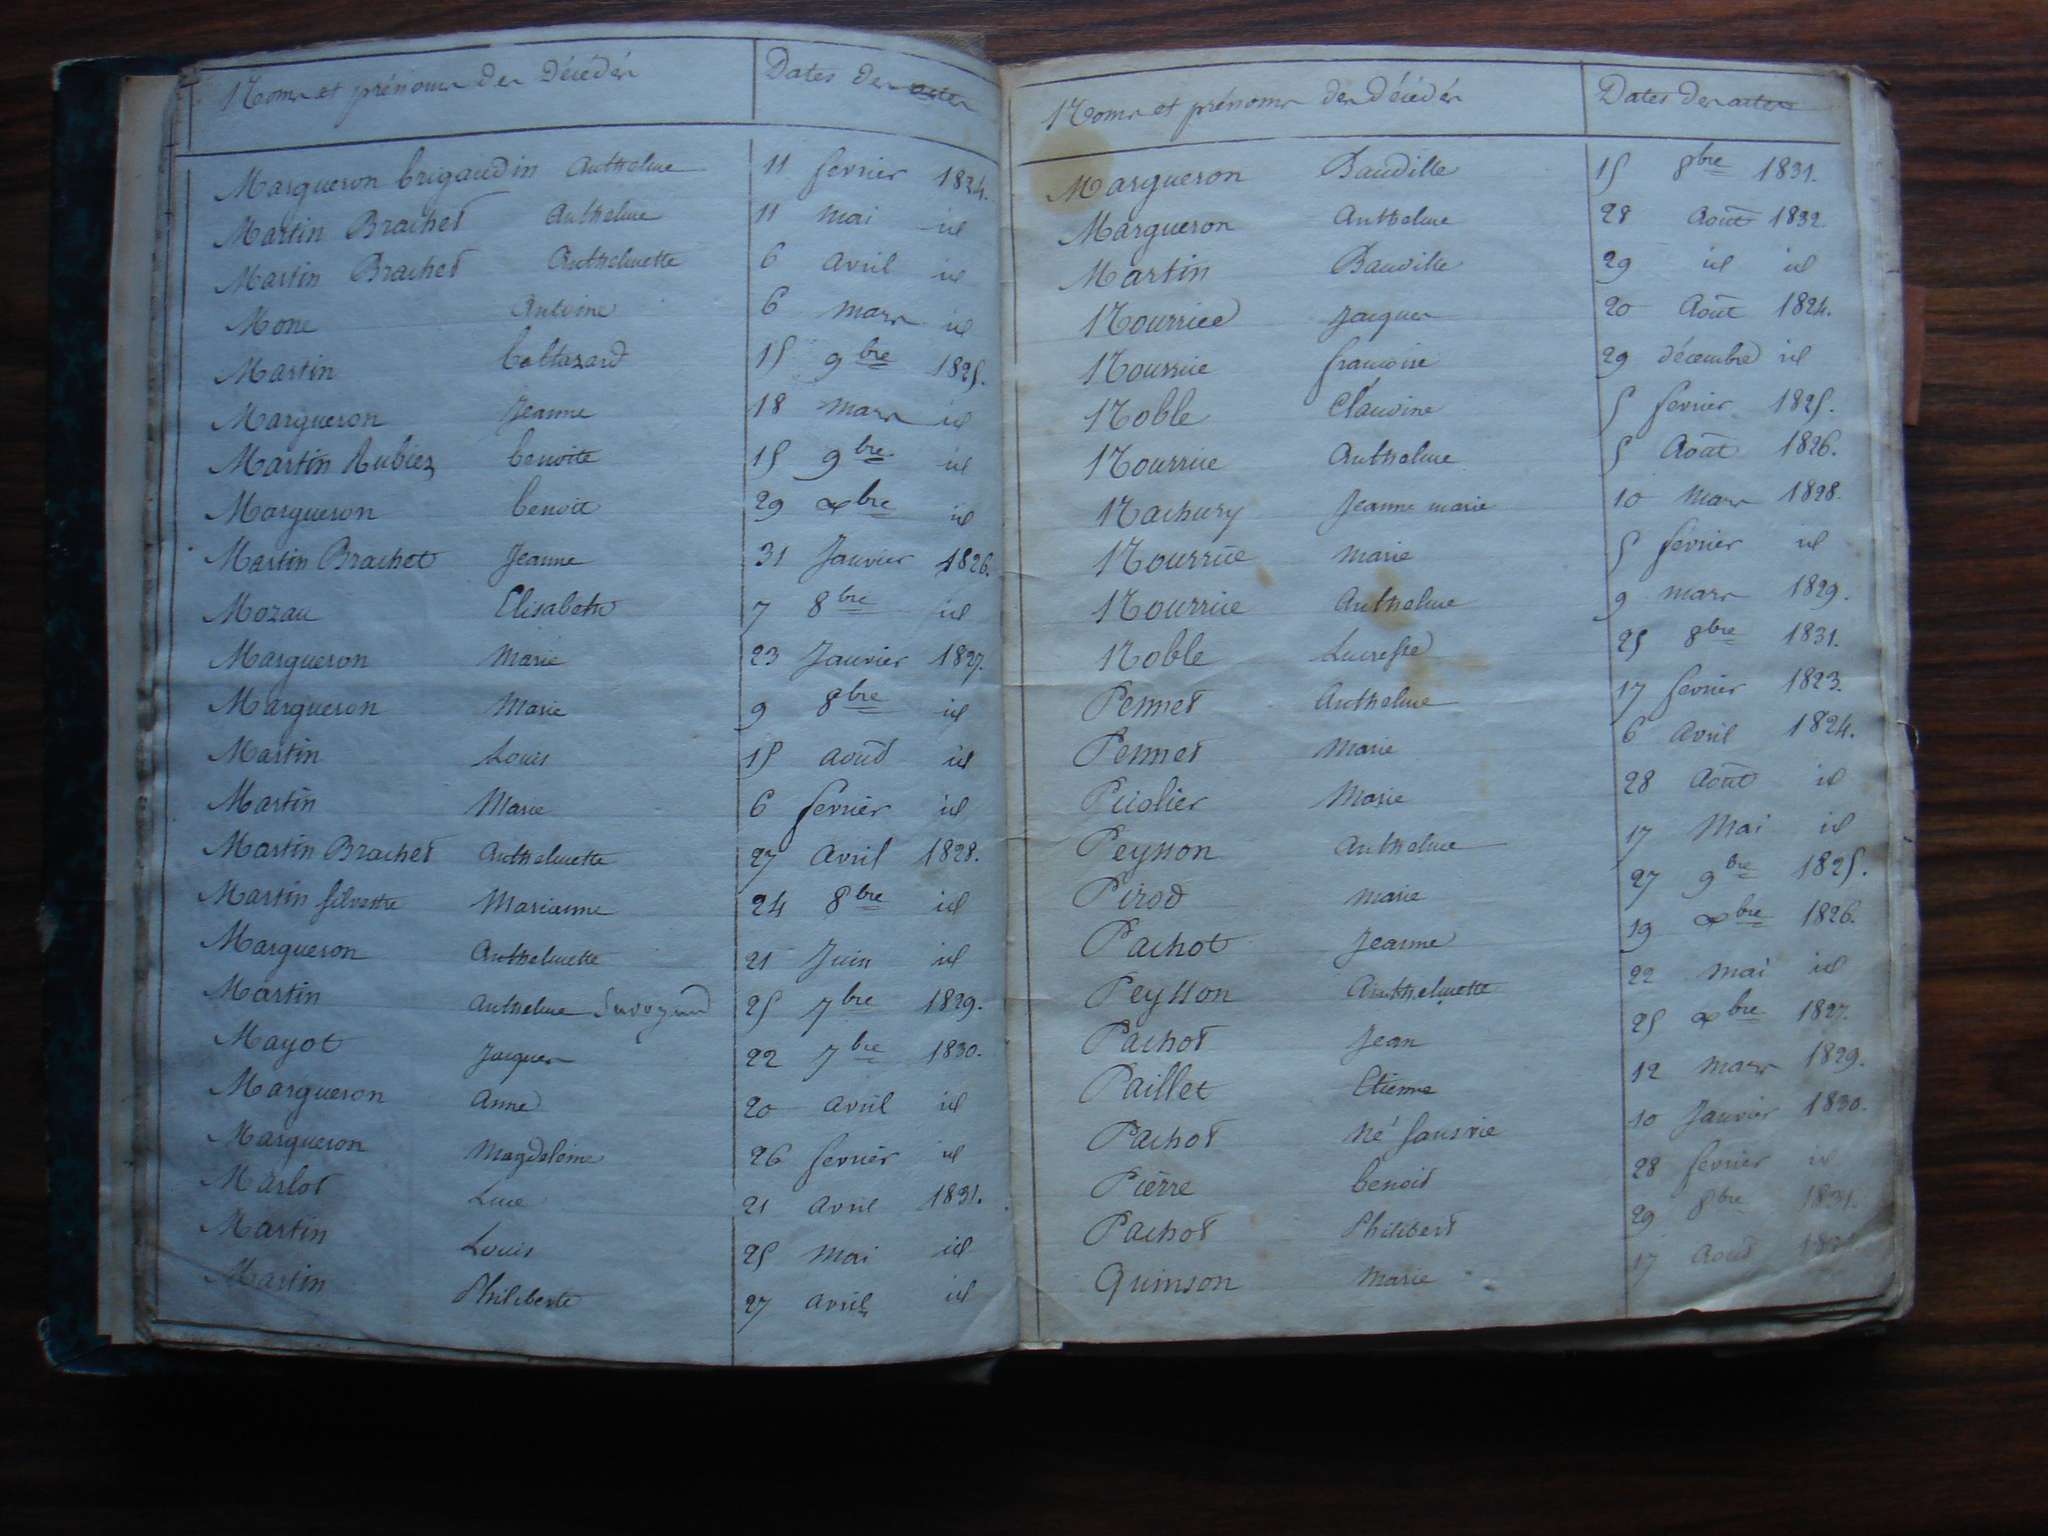 Noms et prénoms des décédés Dates des actes
Margueron brigaudin Anthelme 11 fevrier 1824.
Martin Brachet Anthelme 11 mai id
Martin Brachet Anthelmette 6 avril id
Mone Antoine 6 mars id
Martin baltazard 15 9bre 1825.
Margueron Jeanne 18 mars id
Martin Rubiez benoite 15 9bre id
Margueron benoit 29 xbre id
Martin Brachet Jeanne 31 Janvier 1826.
Mozau Elisabeth 7 8bre id
Margueron Marie 23 Janvier 1827.
Margueron Marie 9 8bre id
Martin Louis 15 août id
Martin Marie 6 fevrier id
Martin Brachet Anthelmette 27 Avril 1828.
Martin Silvestre Marianne 24 8bre id
Margueron Anthelmette 21 Juin id
Martin Anthelme 25 7bre 1829.
Mayot Jacques 22 7bre 1830.
Margueron Anne 20 avril id
Margueron Magdeleine 26 fevrier id
Marlot Luce 21 avril 1831.
Martin Louis 25 Mai id
Martin Philiberte 27 avril id
Noms et prénoms des décédés Dates des actes
Margueron Baudille 15 8bre 1831.
Margueron Anthelme 28 Août 1832.
Martin Baudille 29 id id
Nourrice Jacques 20 Août 1824.
Nourrice francoise 29 décembre id
Noble Claudine 5 fevrier 1825.
Nourrice Anthelme 5 Août 1826.
Nachury Jeanne marie 10 mars 1828.
Nourrice Marie 5 fevrier id
Nourrice Anthelme 9 mars 1829.
Noble Lucresse 25 8bre 1831.
Pennet Anthelme 17 fevrier 1823.
Pennet Marie 6 Avril 1824.
Piolier Marie 28 Août id
Peysson Anthelme 17 Mai id
Pirod Marie 27 9bre 1825.
Pachot Jeanne 19 xbre 1826.
Peysson Anthelmette 22 mai id
Pachot Jean 25 xbre 1827.
Paillet Etienne 12 Mars 1829.
Pachot Né sans vie 10 Janvier 1830.
Pierre benoit 28 fevrier id
Pachot Philibert 29 8bre 1831.
Quinson Marie 17 Août